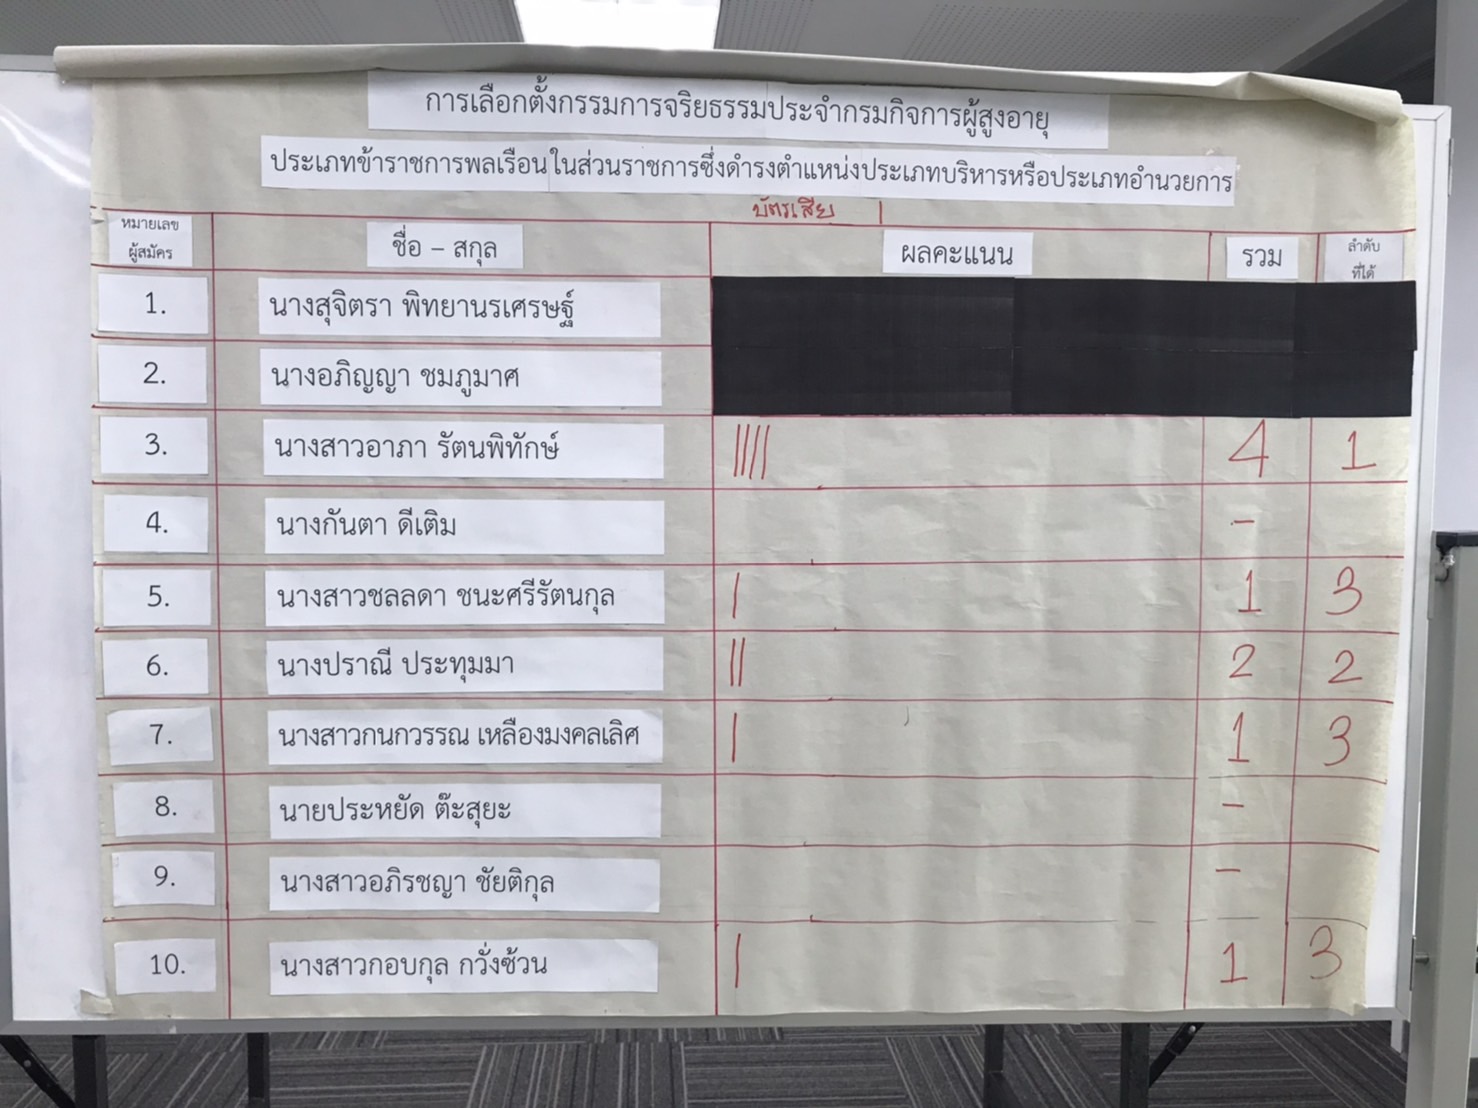 การเลือกตั้งกรรมการจริยธรรมประจำกรมกิจการผู้สูงอายุ
ประเภทข้าราชการพลเรือนในส่วนราชการซึ่งดำรงตำแหน่งประเภทบริหารหรือประเภทอำนวยการ
บัตรเสีย |
หมายเลข
ผู้สมัคร
ชื่อ – สกุล
ผลคะแนน
รวม
ลำดับ
ที่ได้
1. นางสุจิตรา พิทยานรเศรษฐ์
2. นางอภิญญา ชมภูมาศ
3. นางสาวอาภา รัตนพิทักษ์ |||| 4 1
4. นางกันตา ดีเติม -
5. นางสาวชลลดา ชนะศรีรัตนกุล | 1 3
6. นางปราณี ประทุมมา || 2 2
7. นางสาวกนกวรรณ เหลืองมงคลเลิศ | 1 3
8. นายประหยัด ต๊ะสุยะ -
9. นางสาวอภิรชญา ชัยติกุล -
10. นางสาวกอบกุล กวั่งซ้วน | 1 3